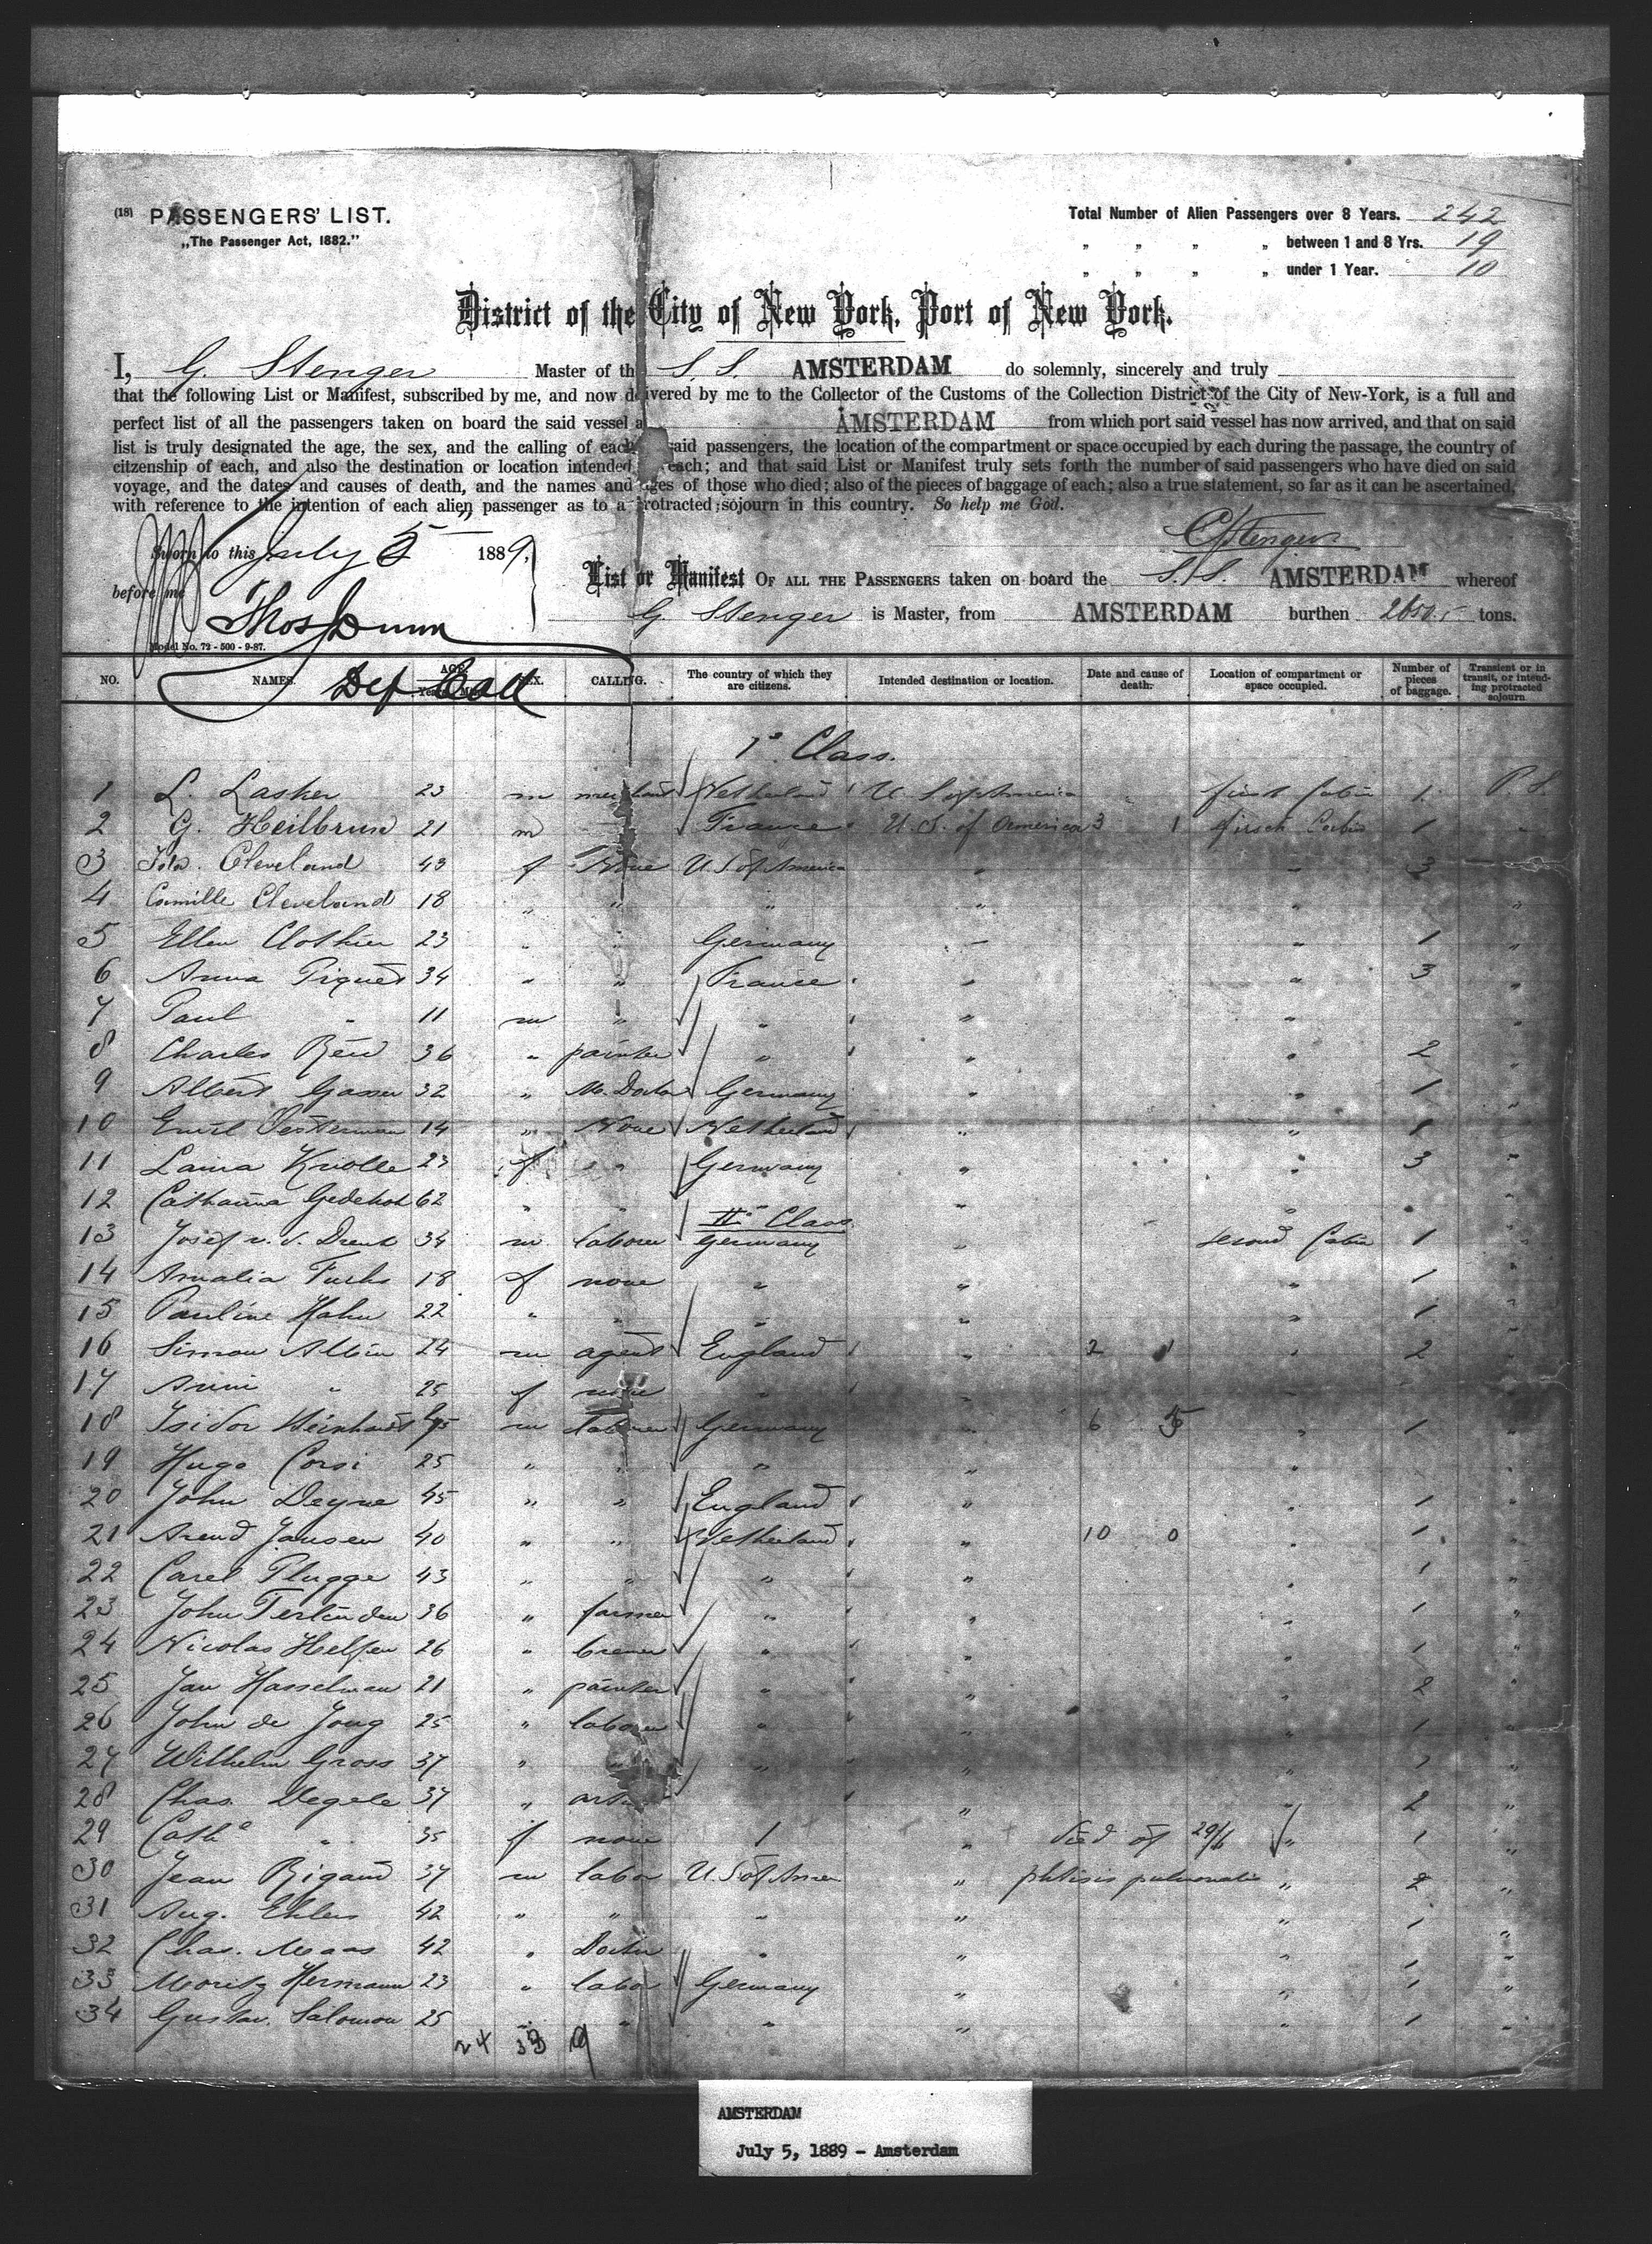 (18) PASSENGERS' LIST.
„The Passenger Act, 1882."
Total Number of Alien Passengers over 8 Years. 242
„ „ „ „ between 1 and 8 Yrs. 19
„ „ „ „ under 1 Year. 10
District of the City of New York, Port of New York.
I, G. Stenger Master of th S. S. AMSTERDAM do solemnly, sincerely and truly
that the following List or Manifest, subscribed by me, and now delivered by me to the Collector of the Customs of the Collection District of the City of New-York, is a full and
perfect list of all the passengers taken on board the said vessel a AMSTERDAM from which port said vessel has now arrived, and that on said
list is truly designated the age, the sex, and the calling of each said passengers, the location of the compartment or space occupied by each during the passage, the country of
citzenship of each, and also the destination or location intended each; and that said List or Manifest truly sets forth the number of said passengers who have died on said
voyage, and the dates and causes of death, and the names and ages of those who died; also of the pieces of baggage of each; also a true statement, so far as it can be ascertained,
with reference to the intention of each alien passenger as to a protracted sojourn in this country. So help me God.
G Stenger
Sworn to this July 5 1889.
before me
Thos J Dunn
Dep Coll
List or Manifest OF ALL THE PASSENGERS taken on board the S. S. AMSTERDAM whereof
G. Stenger is Master, from AMSTERDAM burthen tons.
Model No. 72 - 500 - 9-87.
NO. NAMES. AGE. Years. SEX. CALLING. The country of which they are citizens. Intended destination or location. Date and cause of death. Location of compartment or space occupied. Number of pieces of baggage. Transient or in transit, or intending protracted sojourn
1e Class.
1 L. Lasker 23 m merchant Netherland U. S. of America first Cabin 1 P. S.
2 G. Heilbrun 21 m France U. S. of America 3 1 first Cabin 1
3 Cleveland 43 f None U. S. of America „ „ 3
4 Camille Cleveland 18 „ „ „ „ „ „
5 Ellen Clothier 23 „ „ Germany „ „ 1 „
6 Anna Piqued 34 „ „ France „ „ 3 „
7 Paul „ 11 m „ „ „ „ „
8 Charles 36 „ painter „ „ „ 2 „
9 Albert Gasser 32 „ M. Doctor Germany „ „ 1 „
10 Emil Oesterman 14 „ None Netherland „ „ 1 „
11 Laina Knolle 23 f „ Germany „ „ 3 „
12 Catharina 62 „ „ „ „ „
IIe Class
13 Josef v. d. Drent 34 m laborer Germany „ second Cabin 1 „
14 Amalia Fuchs 18 f none „ „ „ 1 „
15 Pauline Hahn 22 „ „ „ „ „ 1 „
16 Simon Albin 24 m agent England „ 2 1 „ 2 „
17 Anni „ 25 f none „ „ „ „
18 Isidor m laborer Germany „ 6 „ 1 „
19 Hugo Corsi 25 „ „ „ „ „ „
20 John Deyne 45 „ „ England „ „ 1 „
21 Arend Jansen 40 „ „ Netherland „ 10 0 „ 1 „
22 Carel Plugge 43 „ „ „ „ „ 1 „
23 John Terlinden 36 „ farmer „ „ „ 1 „
24 Nicolas Helfen 26 „ brewer „ „ „ 1 „
25 Jan Hasselman 21 „ painter „ „ „ 2 „
26 John de Jong 25 „ laborer „ „ „ 1 „
27 Wilhelm Gross 37 „ „ „ „ „ 1 „
28 Chas. Degele 37 „ „ „ 2 „
29 Cathe „ 35 f none „ died of 29/6 „ 1 „
30 Jean Rigaud 37 m labor U. S. of Amer „ phtisis pulmonalis „ 2 „
31 Aug. Ehlers 42 „ „ „ „ „ 1 „
32 Chas. Maas 42 „ Doctor „ „ „ 1 „
33 Moritz Hermann 23 „ labor Germany „ „ 1 „
34 Gustav Salomon 25 „ „ „ „ „ 1 „
24 33 9
AMSTERDAM
July 5, 1889 - Amsterdam